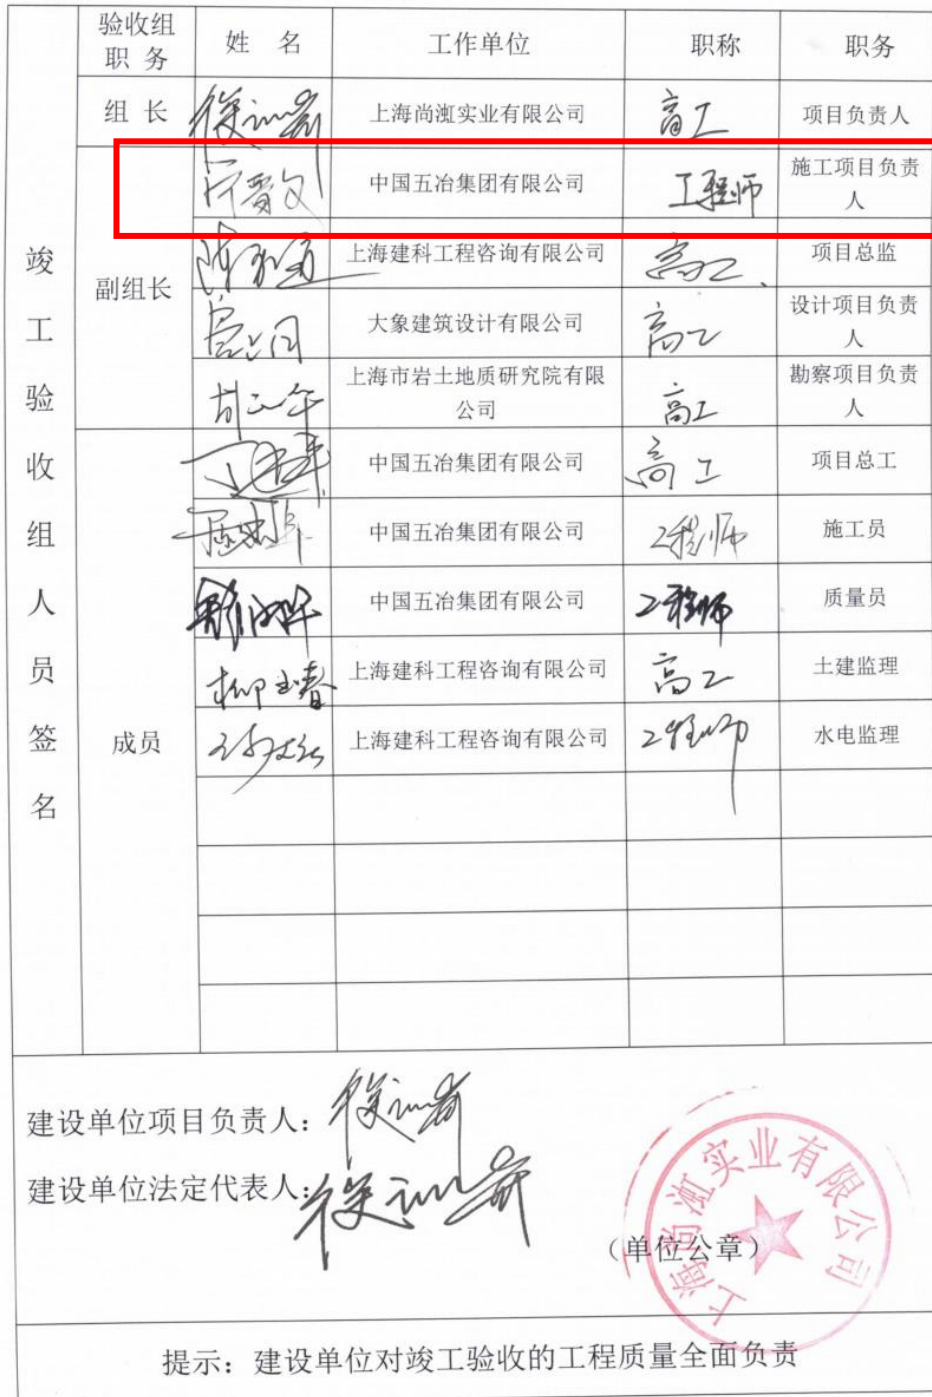 验收组
职 务
姓 名
工作单位
职称
职务
竣工验收组人员签名
组 长
上海尚澒实业有限公司
高工
项目负责人
副组长
中国五冶集团有限公司
工程师
施工项目负责
人
上海建科工程咨询有限公司
高工
项目总监
大象建筑设计有限公司
高工
设计项目负责
人
上海市岩土地质研究院有限
公司
高工
勘察项目负责
人
成员
中国五冶集团有限公司
高工
项目总工
中国五冶集团有限公司
工程师
施工员
中国五冶集团有限公司
工程师
质量员
柳玉春
上海建科工程咨询有限公司
高工
土建监理
上海建科工程咨询有限公司
工程师
水电监理
建设单位项目负责人:
建设单位法定代表人:
(单位公章)
上海尚澒实业有限公司
提示: 建设单位对竣工验收的工程质量全面负责